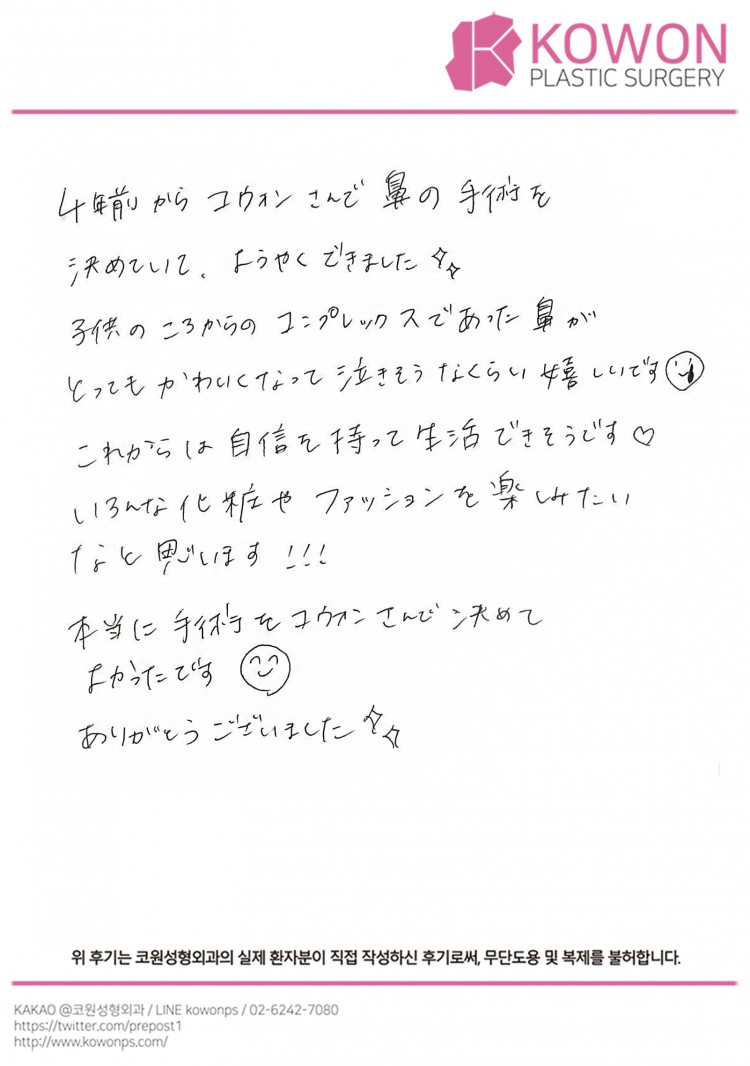 KOWON
PLASTIC SURGERY
4年前から コウォン さんで 鼻の 手術を
決めていて、ようやくできました
子供の ころからの コンプレックスであった鼻が
とっても かわいくなって 泣きそうなくらい 嬉しいです
これからは 自信を 持って 生活できそうです♡
いろんな 化粧や ファッションを 楽しみたい
なと 思います !!!
本当に 手術を コウォン さんで 決めて
よかったです
ありがとう ございました
위 후기는 코원성형외과의 실제 환자분이 직접 작성하신 후기로써, 무단도용 및 복제를 불허합니다.
KAKAO @코원성형외과 / LINE kowonps / 02-6242-7080
https://twitter.com/prepost1
http://www.kowonps.com/